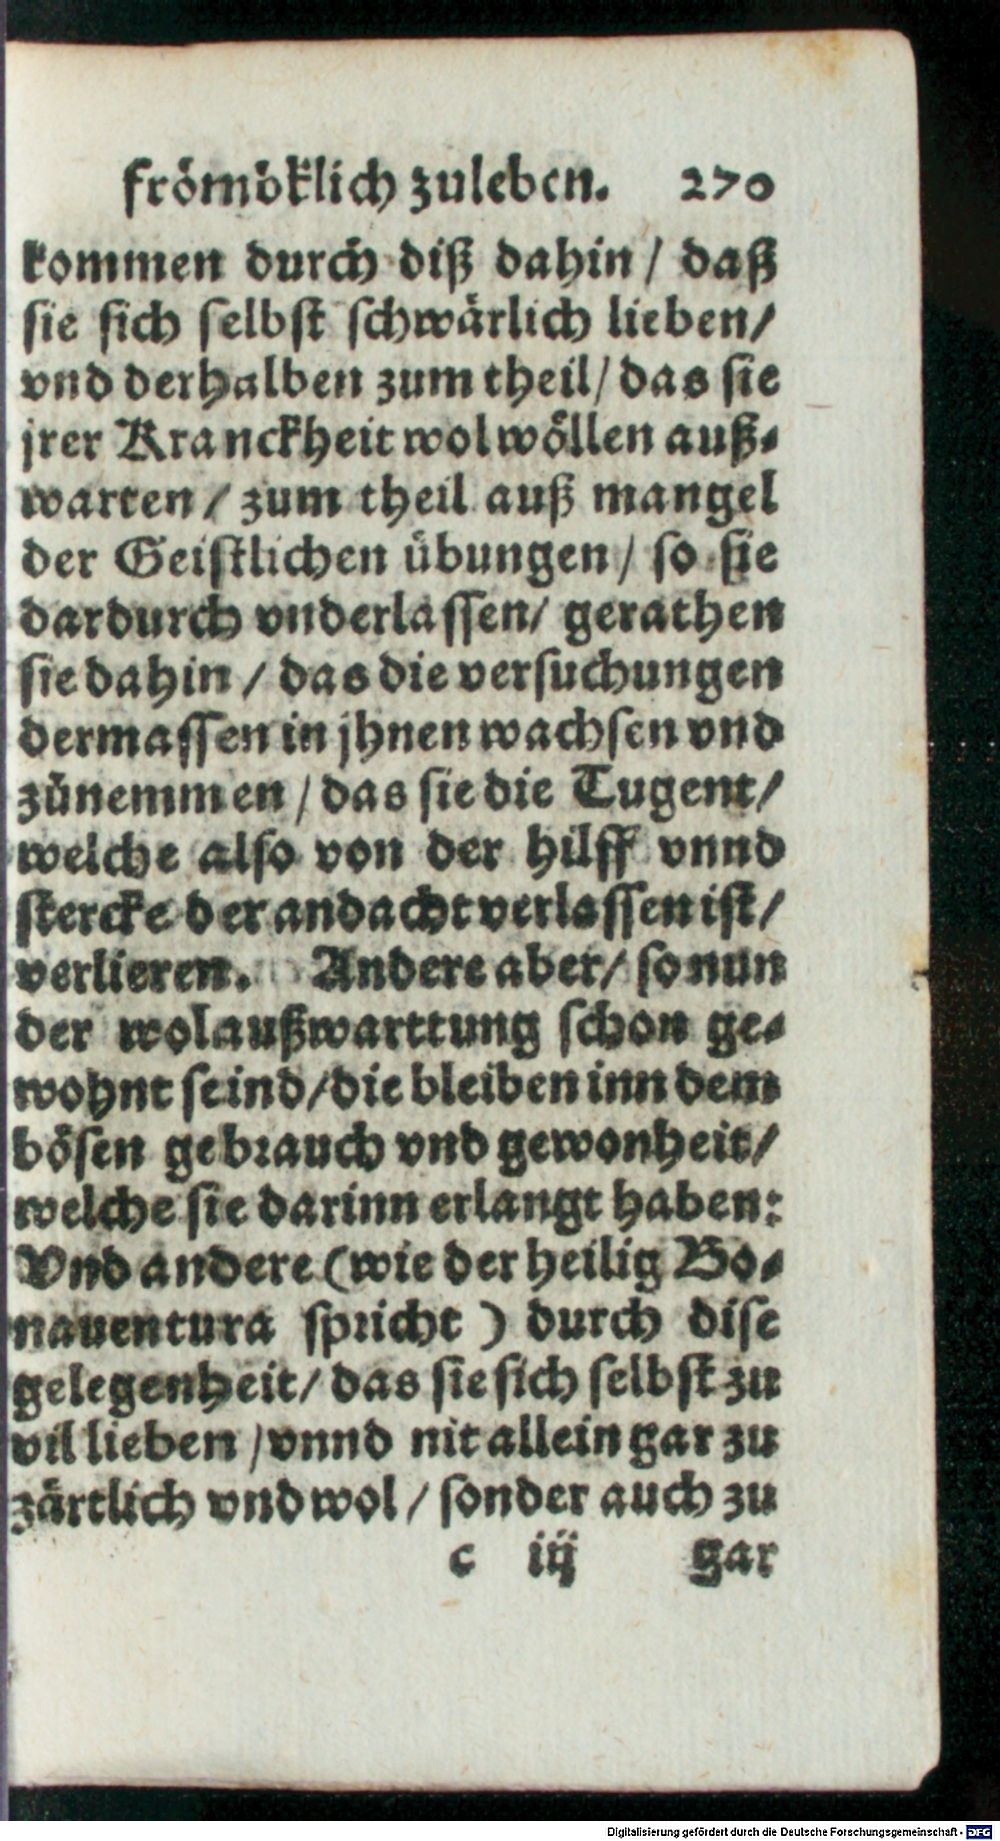 frömöklich zuleben. 270
kommen durch diß dahin / daß
sie sich selbst schwärlich lieben/
vnd derhalben zum theil/ das sie
jrer Kranckheit wol wöllen auß-
warten / zum theil auß mangel
der Geistlichen übungen / so sie
dardurch vnderlassen/ gerathen
sie dahin / das die versuchungen
dermassen in jhnen wachsen vnd
zünemmen / das sie die Tugent/
welche also von der hilff vnnd
stercke der andacht verlassen ist/
verlieren. Andere aber/ so nun
der wolaußwarttung schon ge-
wohnt seind/die bleiben inn dem
bösen gebrauch vnd gewonheit/
welche sie darinn erlangt haben:
Vnd andere (wie der heilig Bo-
nauentura spricht ) durch dise
gelegenheit/ das sie sich selbst zu
vil lieben /vnnd nit allein gar zu
zärtlich vnd wol / sonder auch zu
c iij gar
Digitalisierung gefördert durch die Deutsche Forschungsgemeinschaft - DFG